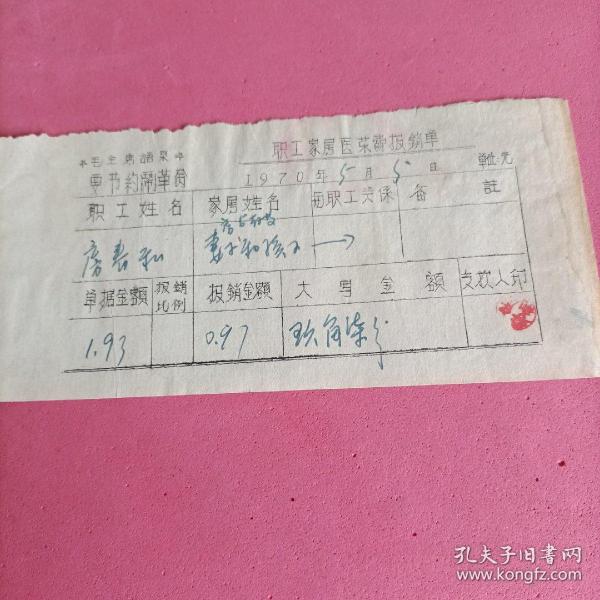 职工家属医药费报銷单
★毛主席語录★
要节约鬧革命
1970年5月5日 單位:元
职工姓名 家属姓名 与职工关係 备註
妻子和孩子 →
单据金額 报銷比例 报銷金額 大写金額 支款人印
1.93 0.97 玖角柒分
孔夫子旧书网
www.kongfz.com